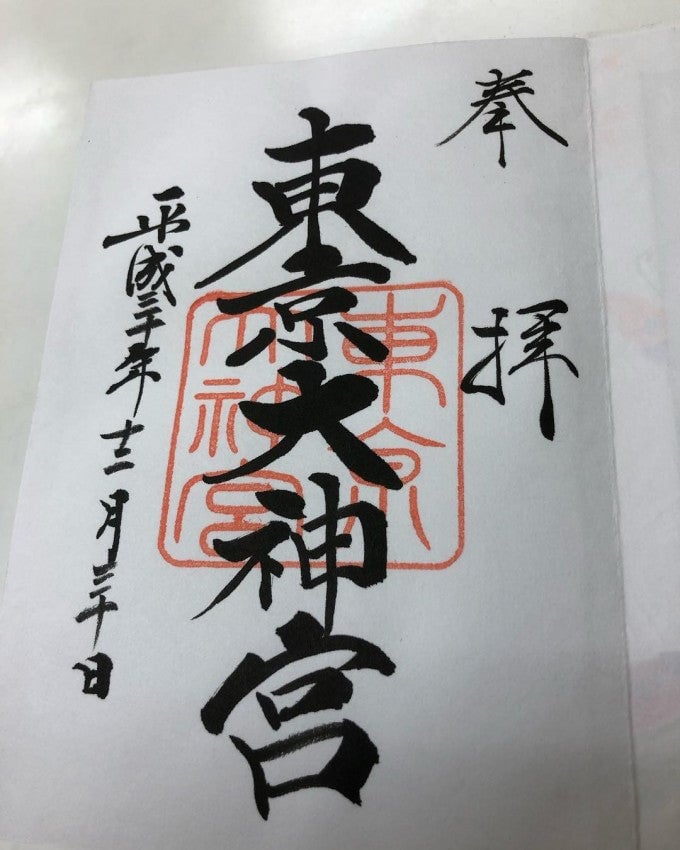 奉拝
東京大神宮
東京大神宮
平成三十年十二月三十日